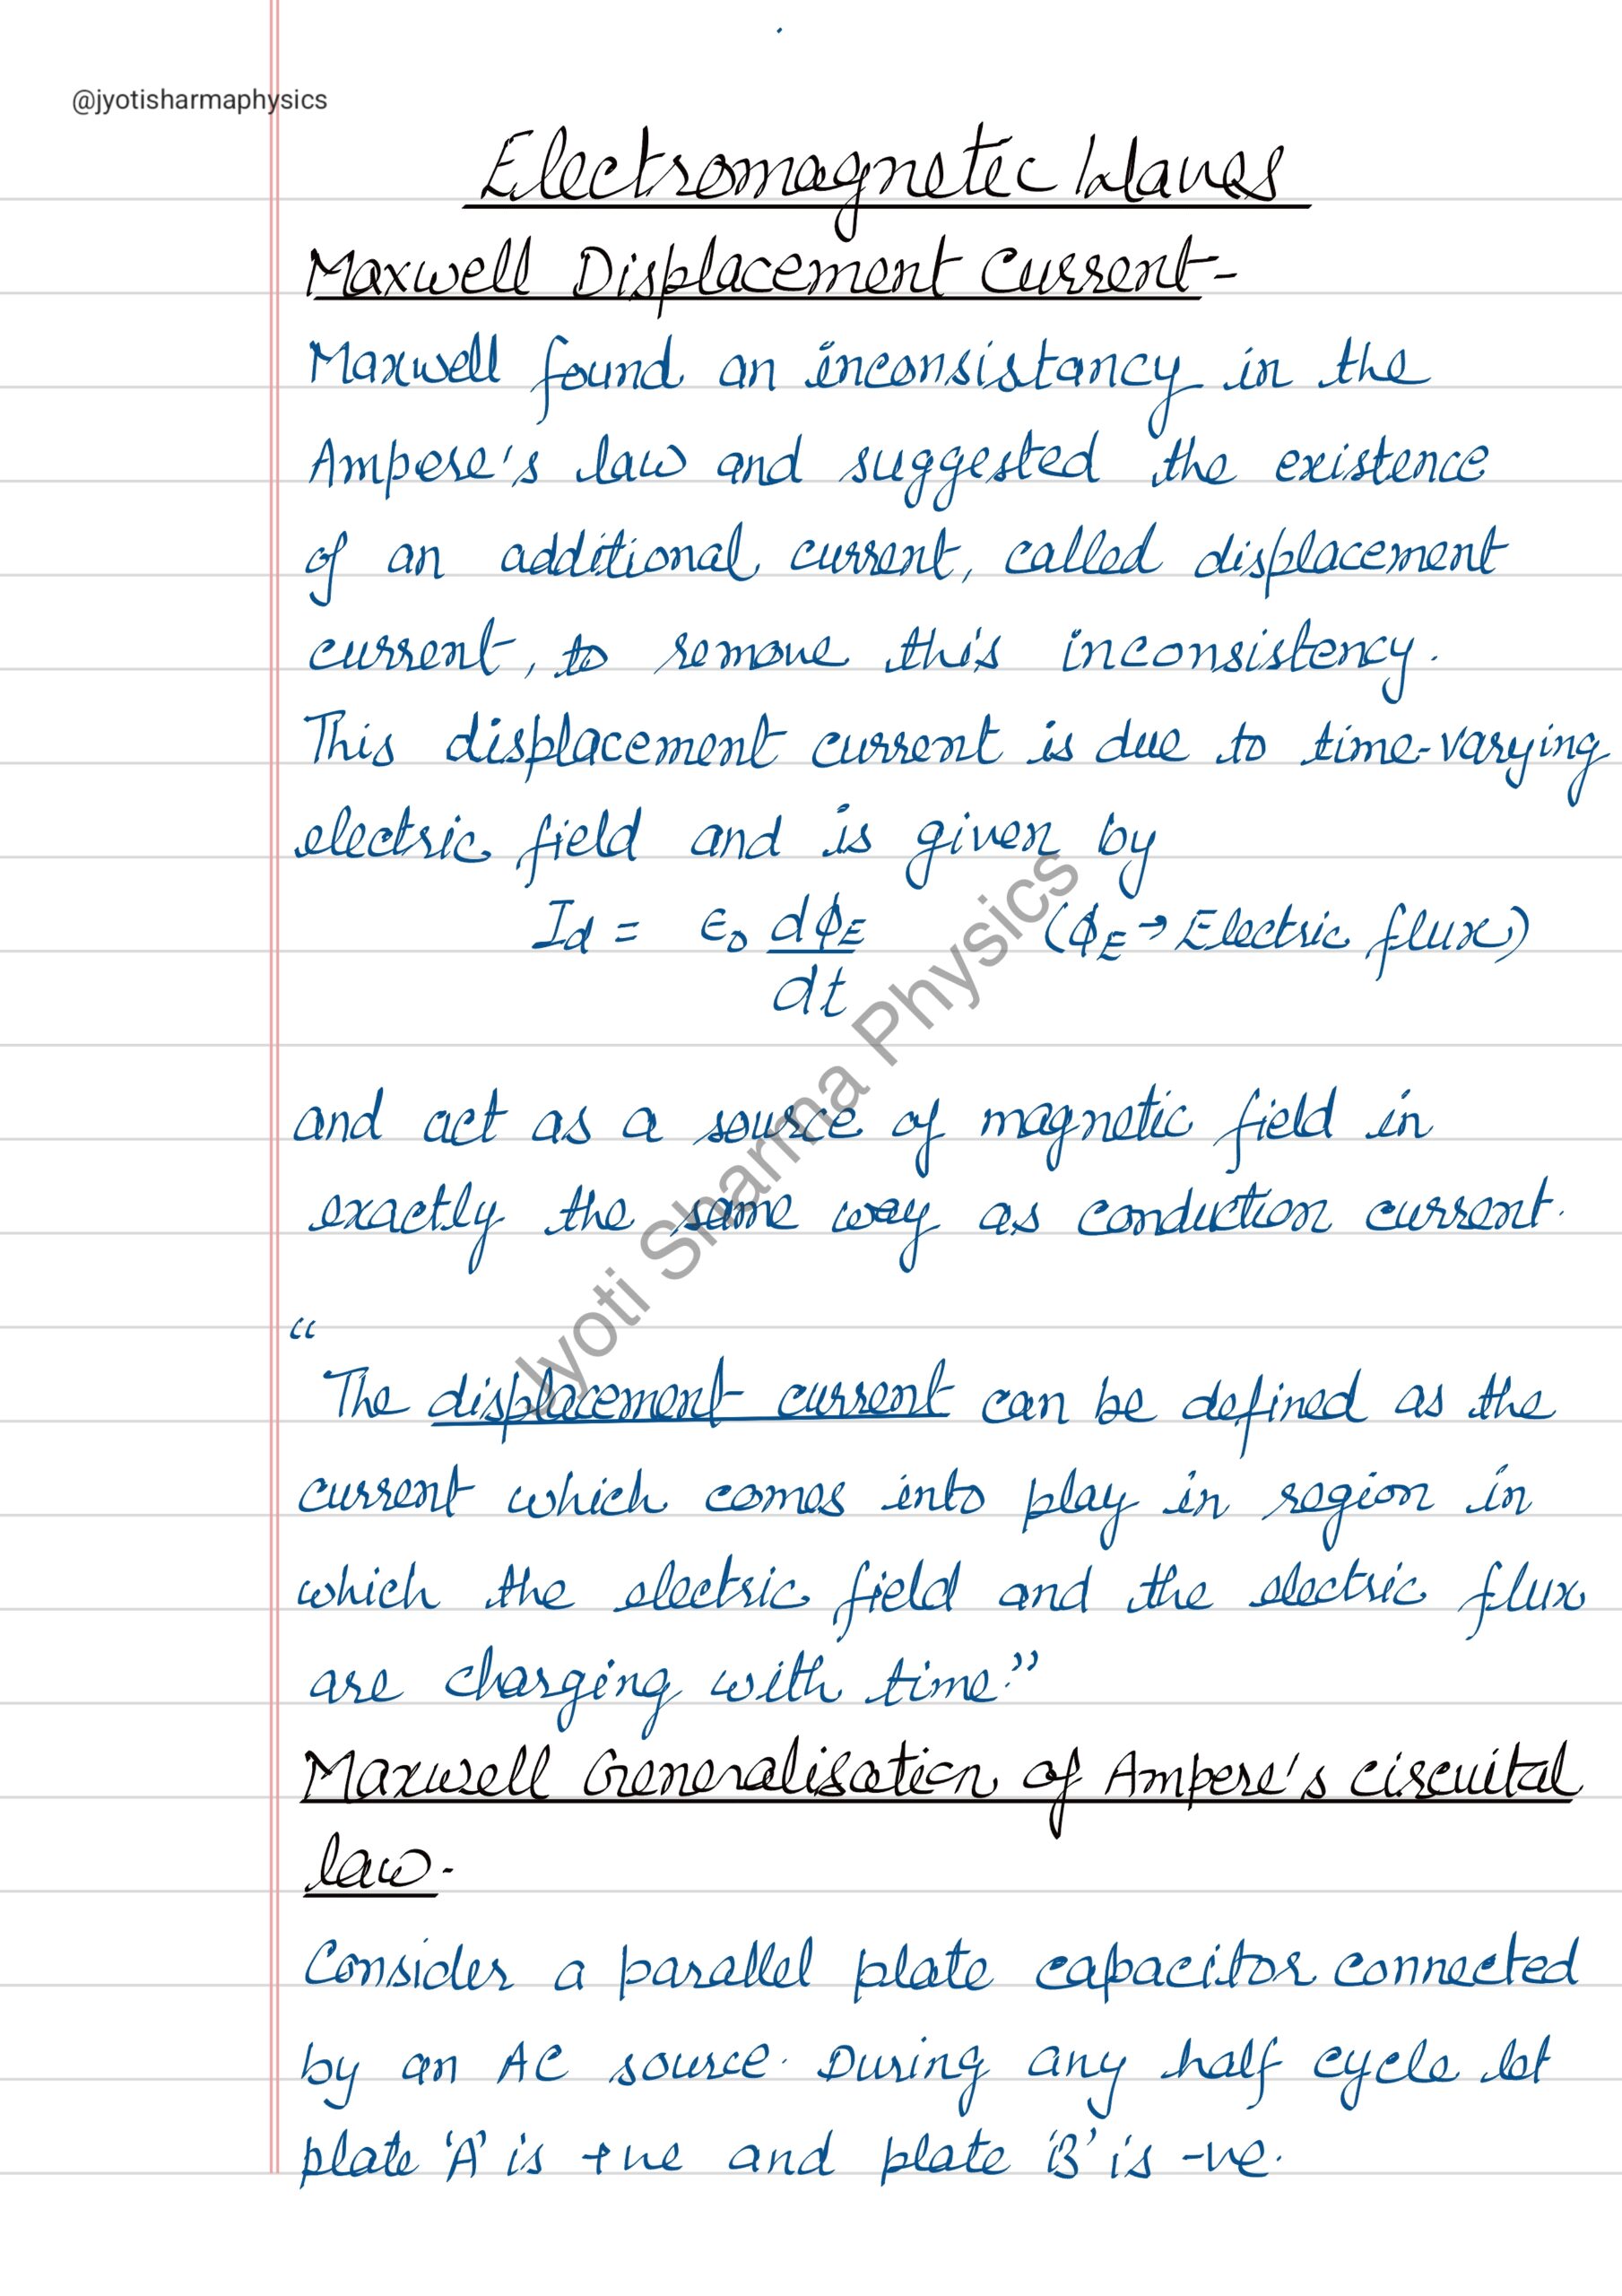 @jyotisharmaphysics
Electromagnetic Waves
Maxwell Displacement Current-
Maxwell found an inconsistancy in the
Ampere's law and suggested the existence
of an additional current, called displacement
current, to remove this inconsistency.
This displacement current is due to time-varying
electric field and is given by
Id = ϵ0 dϕE/dt (ϕE → Electric flux)
and act as a source of magnetic field in
exactly the same way as conduction current.
“
The displacement current can be defined as the
current which comes into play in region in
which the electric field and the electric flux
are charging with time.”
Maxwell Generalisation of Ampere's circuital
law-
Consider a parallel plate capacitor connected
by an AC source. During any half cycle let
plate 'A' is +ve and plate 'B' is -ve.
Jyoti Sharma Physics